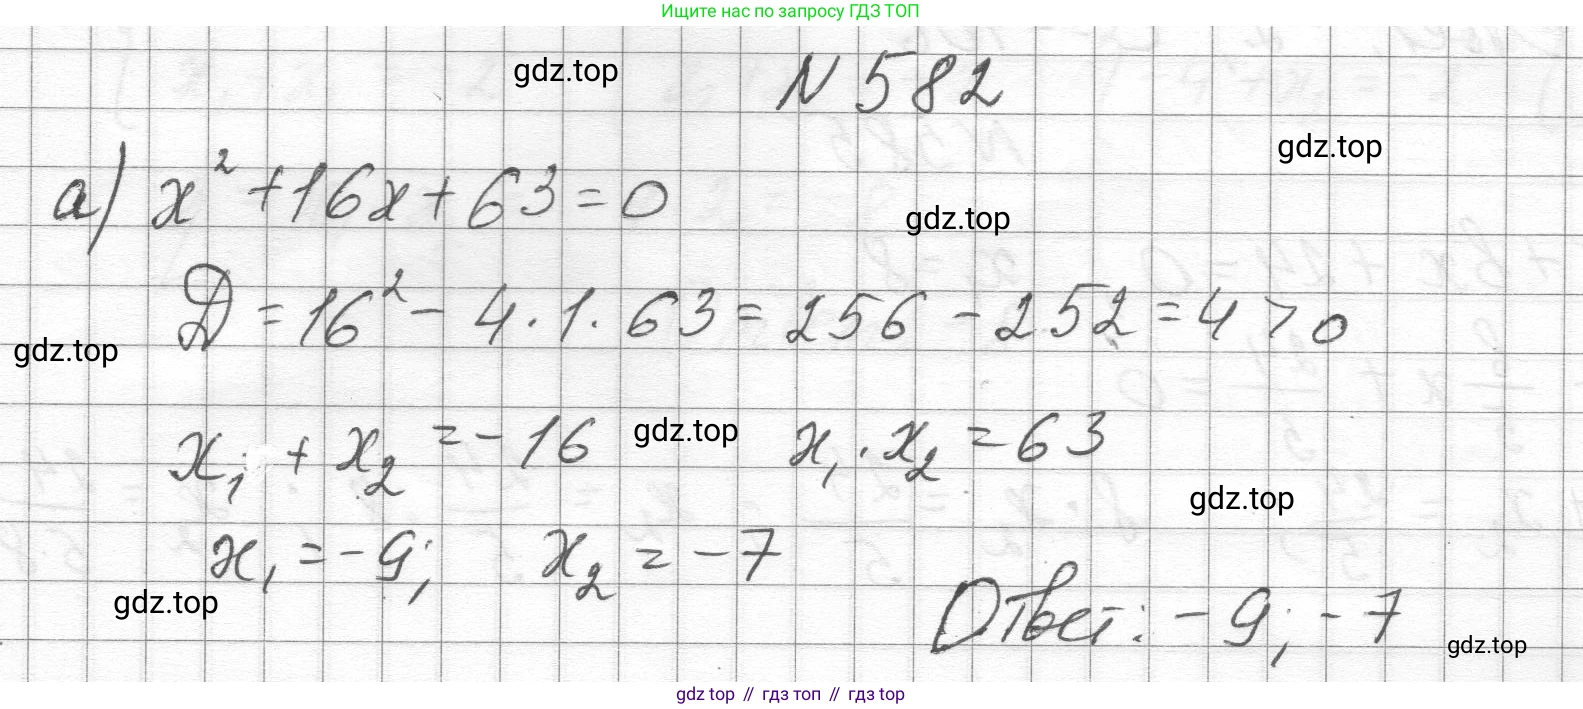 Ищите нас по запросу ГДЗ ТОП
gdz.top N 582
gdz.top
а) x² + 16x + 63 = 0
gdz.top
D = 16² - 4 · 1 · 63 = 256 - 252 = 4 > 0
gdz.top
x₁ + x₂ = -16 gdz.top x₁ · x₂ = 63
gdz.top
x₁ = -9; x₂ = -7
gdz.top
Ответ: -9; -7
gdz.top
gdz top // гдз топ // gdz top